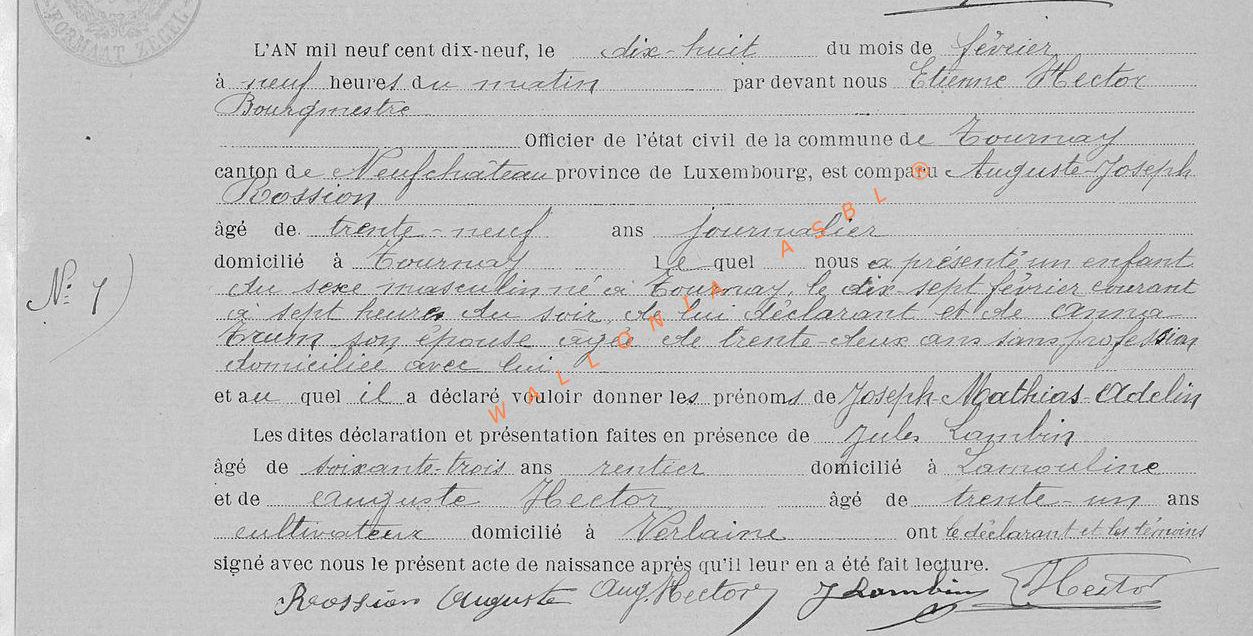 FORMAAT ZEGEL
L'AN mil neuf cent dix-neuf, le dix-huit du mois de février
à neuf heures du matin par devant nous Etienne Hector
Bourgmestre
Officier de l'état civil de la commune de Tournay
canton de Neufchâteau province de Luxembourg, est comparu Auguste-Joseph
Rossion
âgé de trente-neuf ans journalier
domicilié à Tournay le quel nous a présenté un enfant
du sexe masculin né à Tournay, le dix-sept février courant
à sept heures du soir, de lui déclarant et de Anna
son épouse agée de trente-deux ans sans profession
domiciliée avec lui
et au quel il a déclaré vouloir donner les prénoms de Joseph-Mathias-Adelin
N° 7
Les dites déclaration et présentation faites en présence de Jules Lambin
âgé de soixante-trois ans rentier domicilié à Lamouline
et de Auguste Hector âgé de trente-un ans
cultivateur domicilié à Verlaine ont le déclarant et les témoins
signé avec nous le présent acte de naissance après qu'il leur en a été fait lecture.
Rossion Auguste Aug Hector J Lambin E Hector
WALLONIA ASBL ®